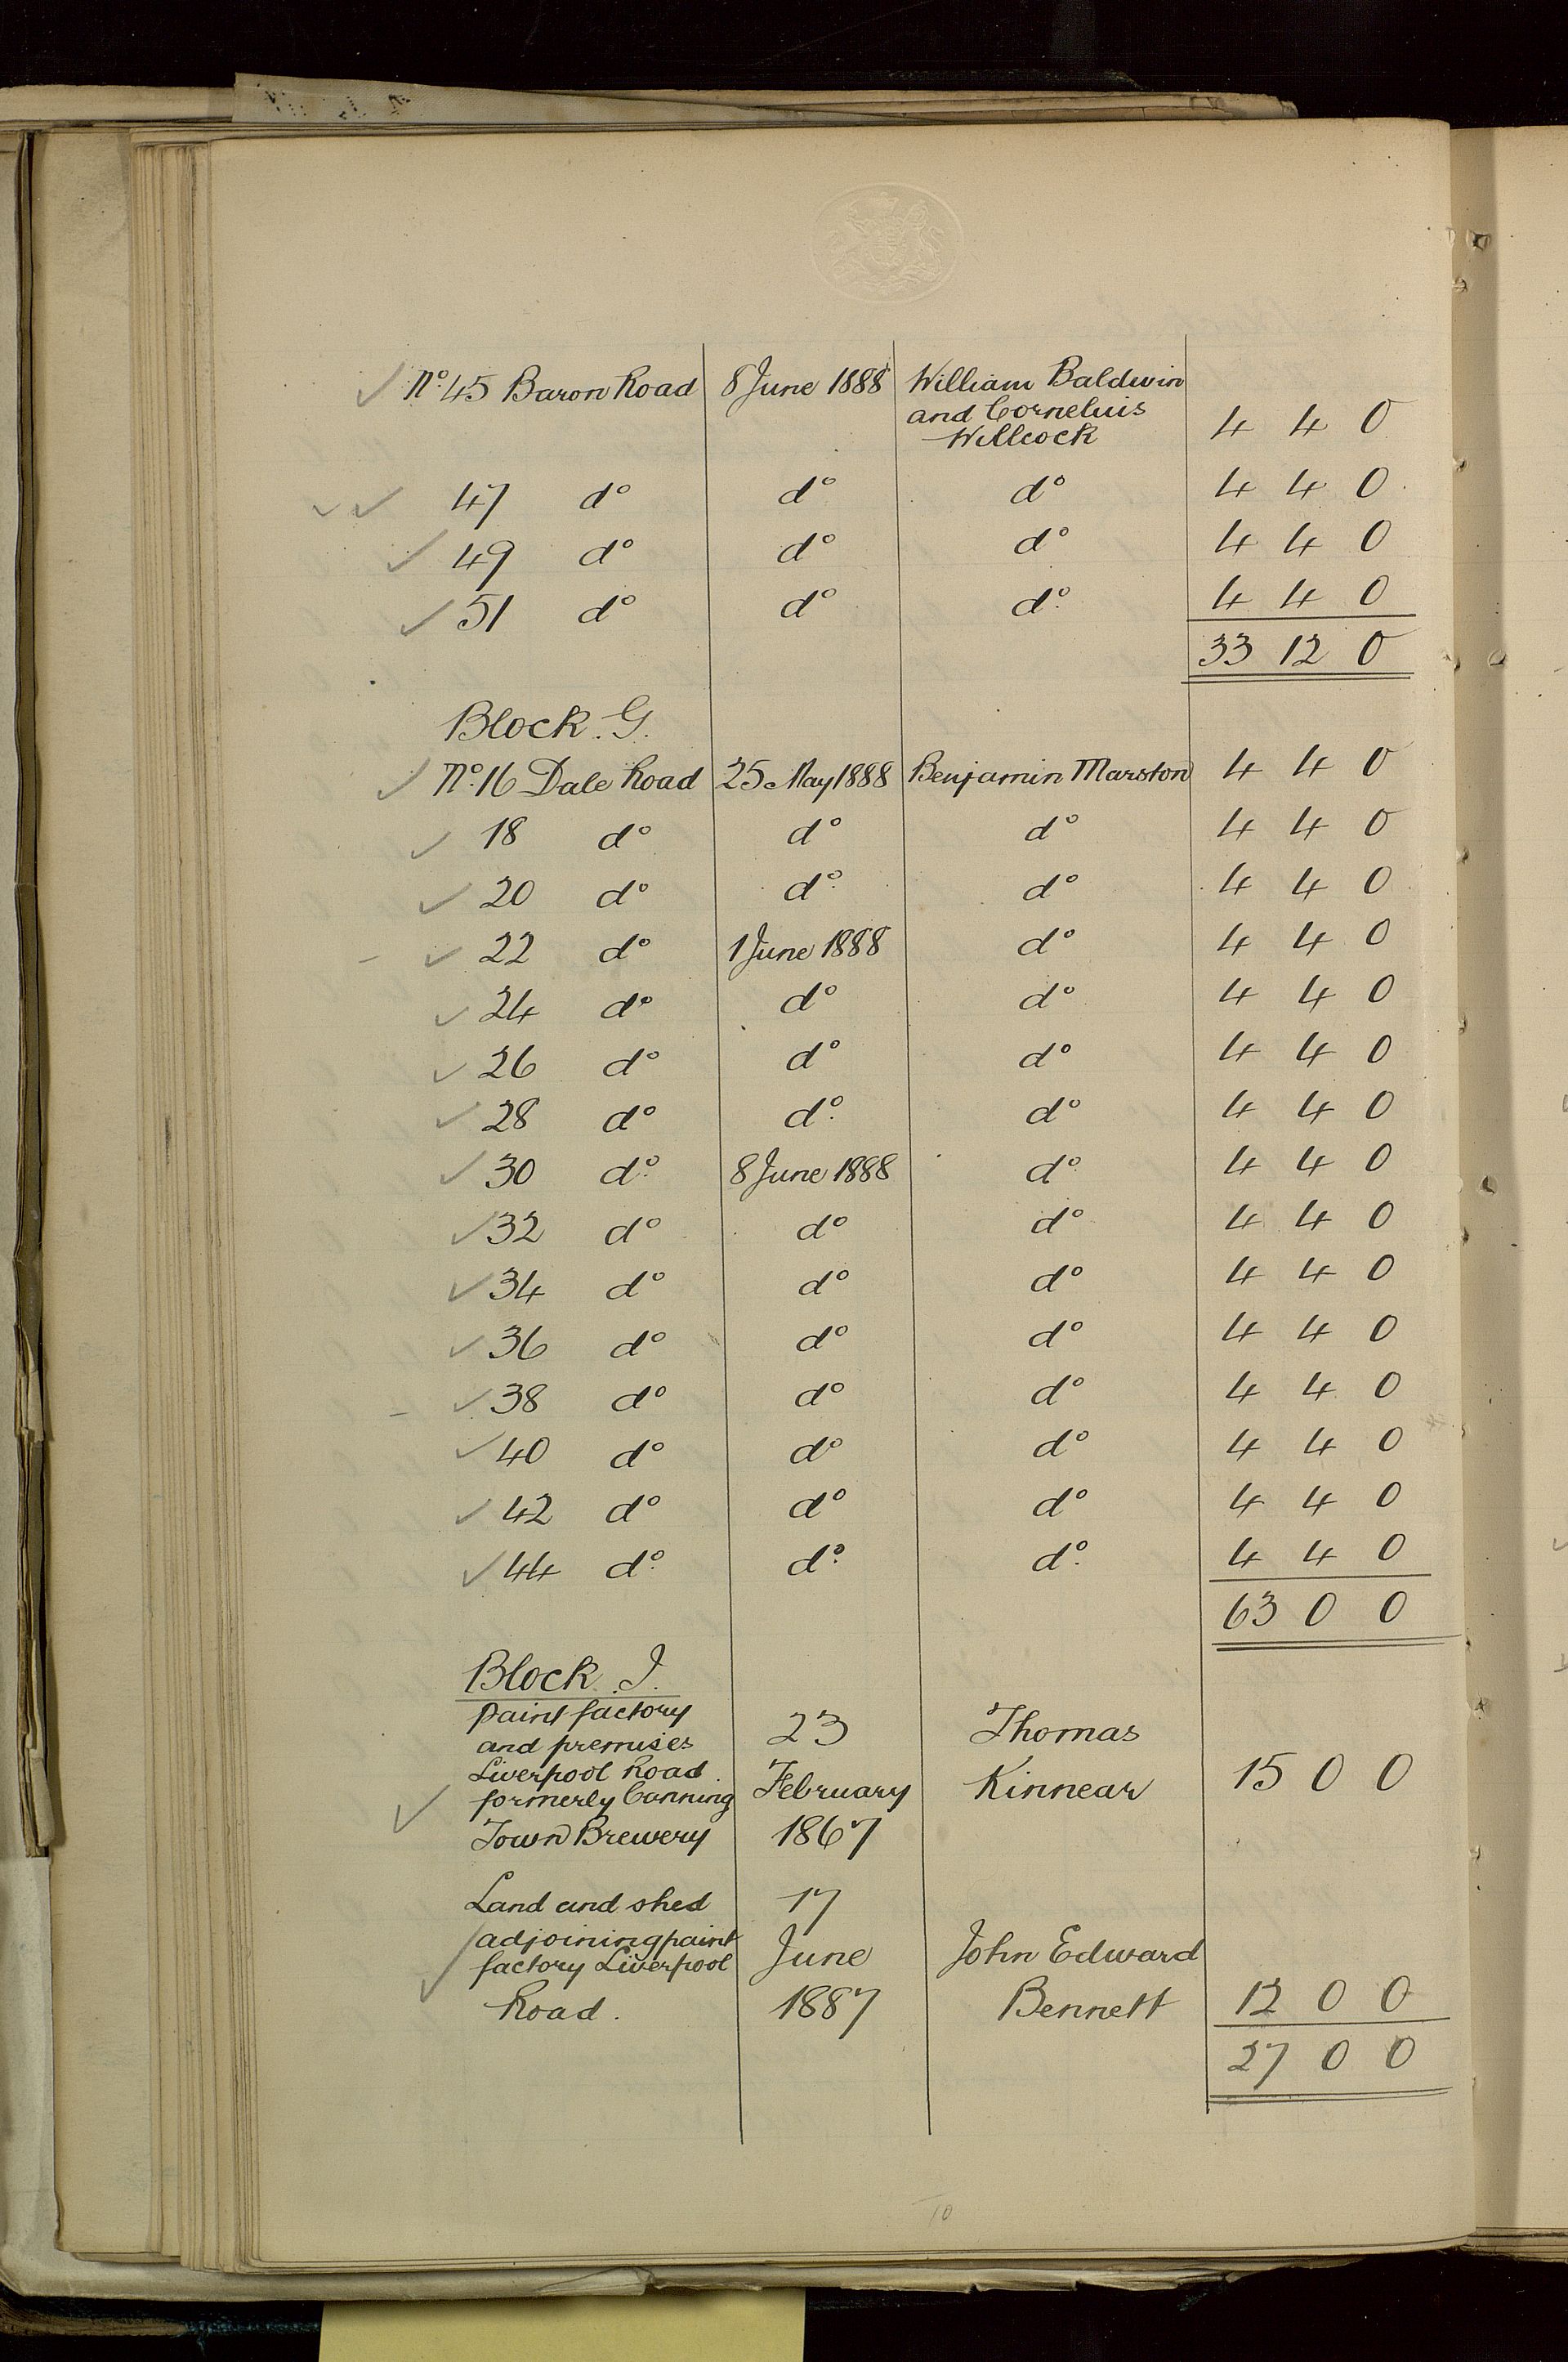 No. 45 Baron Road 8 June 1888 William Baldwin
and Cornelius
Willcock 4 4 0
47 do do do 4 4 0
49 do do do 4 4 0
51 do do do 4 4 0
33 12 0
Block. G.
No. 16 Dale Road 25 May 1888 Benjamin Marston 4 4 0
18 do do do 4 4 0
20 do do do 4 4 0
22 do 1 June 1888 do 4 4 0
24 do do do 4 4 0
26 do do do 4 4 0
28 do do do 4 4 0
30 do 8 June 1888 do 4 4 0
32 do do do 4 4 0
34 do do do 4 4 0
36 do do do 4 4 0
38 do do do 4 4 0
40 do do do 4 4 0
42 do do do 4 4 0
44 do do do 4 4 0
63 0 0
Block. J.
Paint factory
and premises 23 Thomas
Liverpool Road.
formerly Canning February Kinnear 15 0 0
Town Brewery 1867
Land and shed 17
adjoining paint June John Edward
factory Liverpool
Road. 1887 Bennett 12 0 0
27 0 0
10